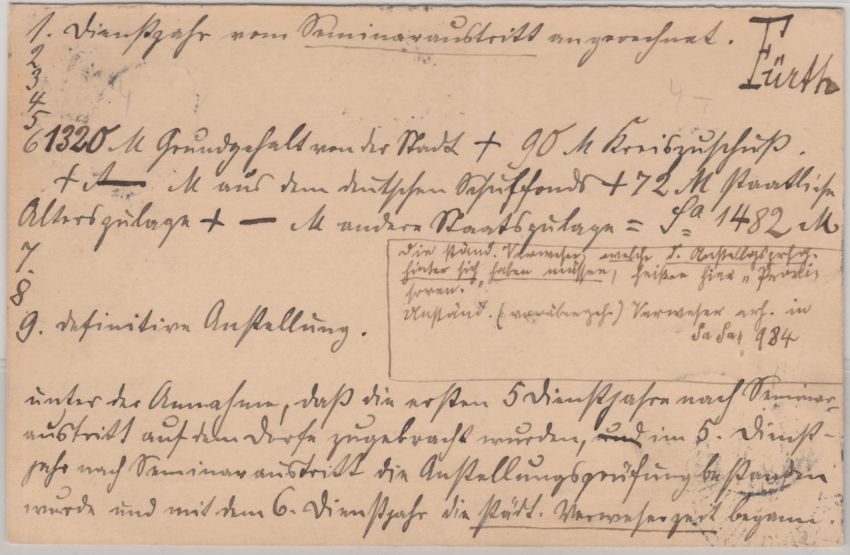 1. Dienstjahr vom Seminaraustritt angerechnet.
Fürth
2
3
4
5
6 1320 M Grundgehalt von der Stadt + 90 M Kreiszuschuß.
+ — M aus dem deutschen Schulfonds + 72 M Staatliche
Alterszulage + — M andere Staatszulage = Sa 1482 M
7.
8
9. definitive Anstellung.
Die ständ. Verweser, welche d. Anstellgsprfg.
hinter sich haben müssen, heißen hier „Provi-
soren."
Unständ. (vorübergeh.) Verweser erh. in
Sa Sa, 984
unter der Annahme, daß die ersten 5 Dienstjahre nach Seminar-
austritt auf dem Dorfe zugebracht wurden, und im 5. Dienst-
jahr nach Seminaraustritt die Anstellungsprüfung bestanden
wurde und mit dem 6. Dienstjahr die städt. Verweserzeit begann.